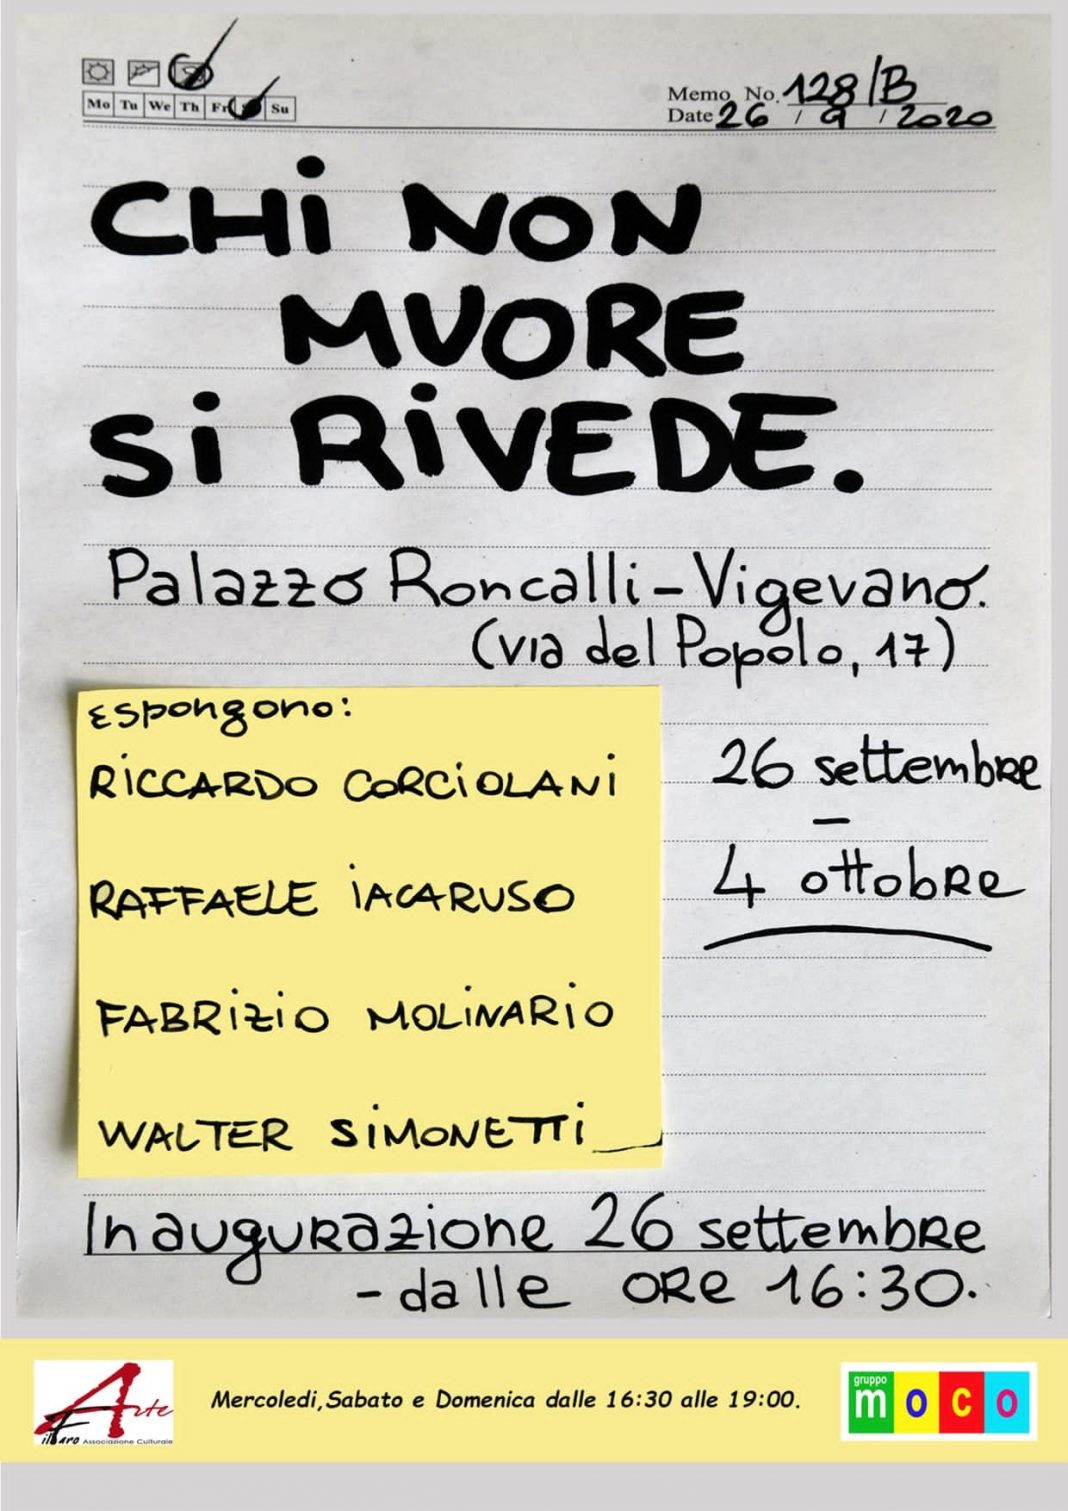 Mo Tu We Th Fr Su
Memo No. 128/B
Date 26 / 9 / 2020
CHi NON
MUORE
Si RiVEDE.
Palazzo Roncalli - Vigevano.
(via del Popolo, 17)
Espongono:
RiCCARDO CORCiOLANi
RAFFAELE iACARUSO
FABRiZiO MOLiNARiO
WALTER SiMONETTi
26 settembre
-
4 ottobre
Inaugurazione 26 settembre
- dalle ORE 16:30.
Arte
il Faro Associazione Culturale
Mercoledi,Sabato e Domenica dalle 16:30 alle 19:00.
gruppo
moco